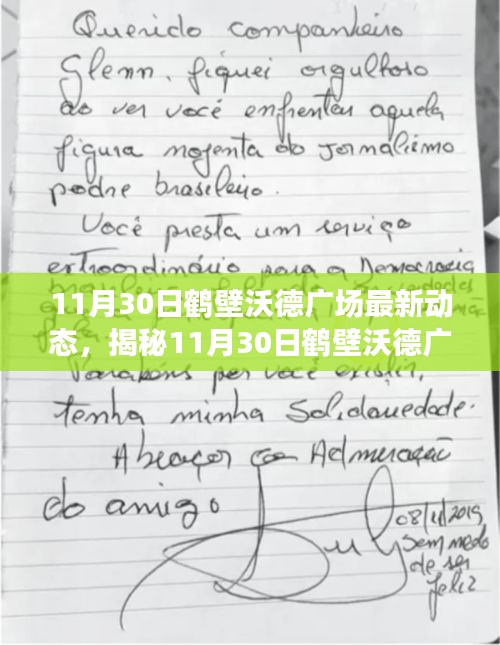 Querido companheiro
Glenn, fiquei orgulhoso
ao ver você enfrentar aquela
figura nojenta do Jornalismo
podre brasileiro.
Você presta um serviço
extraordinário para a Democracia
11月30日鹤壁沃德广场最新动
态，揭秘11月30日鹤壁沃德广
Parabéns por você existir,
tenha minha Solidariedade.
Abraços com Admiração
do amigo
Lula
08/11/2019
sem medo
de ser
feliz